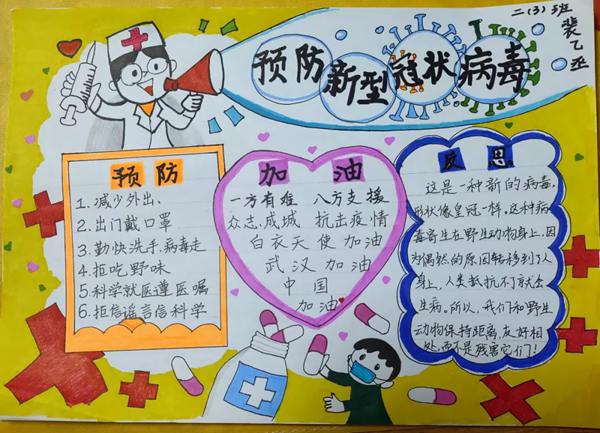 二(3)班
裴乙丞
预防新型冠状病毒
预防
1.减少外出、
2.出门戴口罩
3.勤快洗手,病毒走
4.拒吃野味
5.科学就医遵医嘱
6.拒信谣言信科学
加油
一方有难 八方支援
众志成城 抗击疫情
白衣天使加油
武汉加油
中国
加油
反思
这是一种新的病毒.
形状像皇冠一样.这种病
毒寄生在野生动物身上,因
为偶然的原因转移到了人
身上,人类抵抗不了就会
生病。所以,我们和野生
动物保持距离,友好相
处,而不是残害它们!